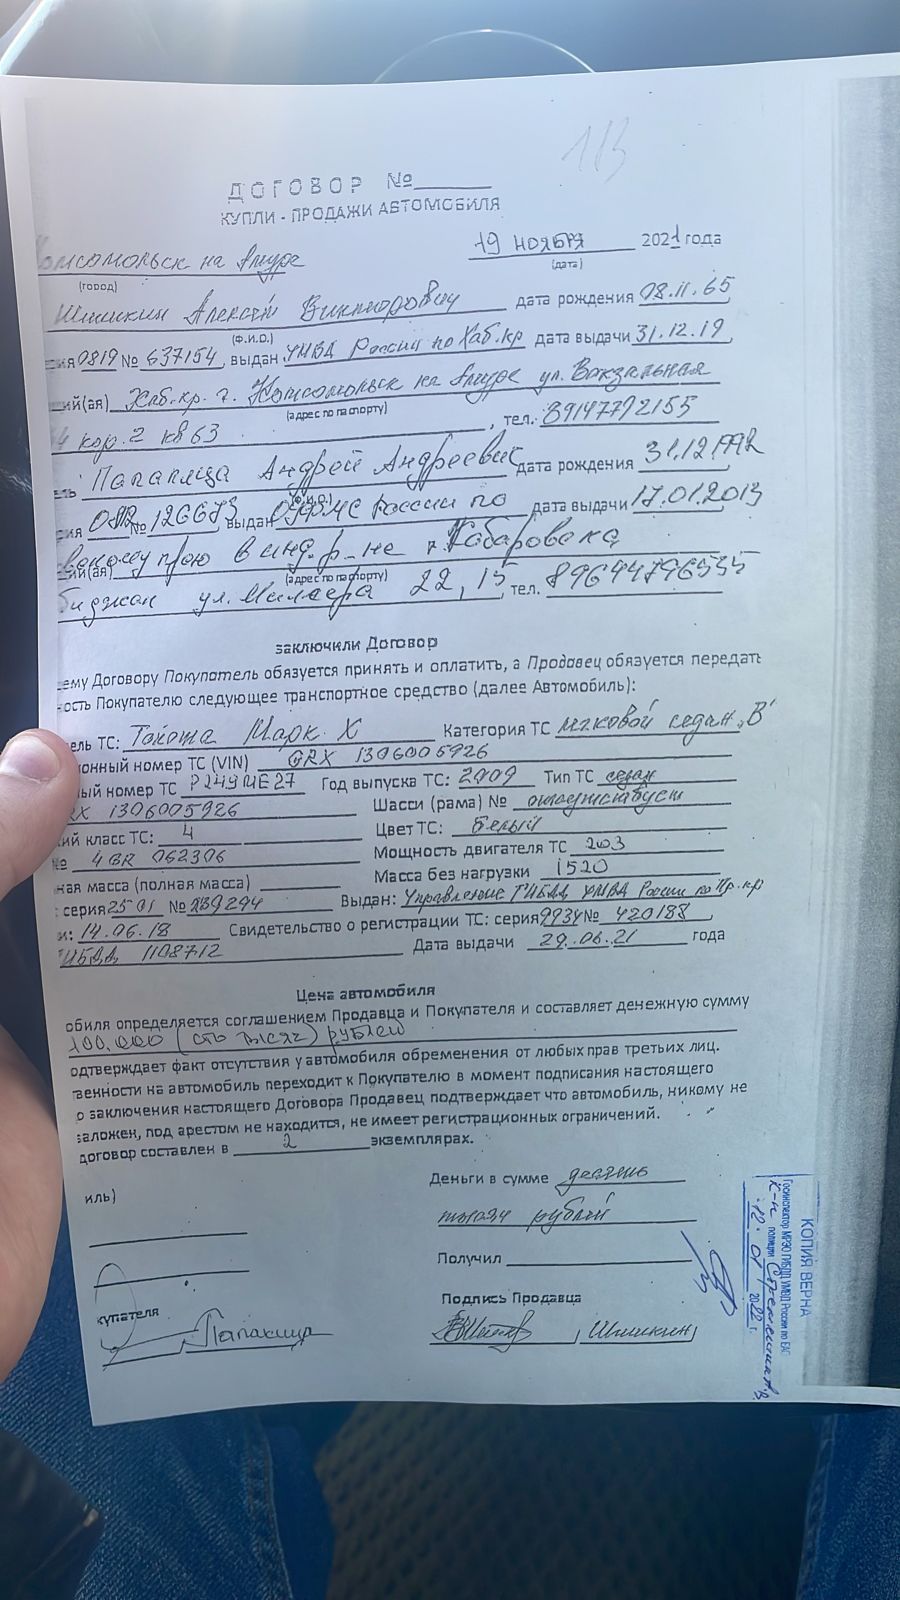 113
ДОГОВОР №
КУПЛИ - ПРОДАЖИ АВТОМОБИЛЯ
омсомольск на Амуре 19 ноября 2021 года
(город) (дата)
Шишкин Алексей Викторович дата рождения 08.11.65
(Ф.И.О.)
ия 0819 № 637154, выдан УМВД России по Хаб.кр дата выдачи 31.12.19
ий(ая) Хаб.кр. г. Комсомольск на Амуре ул. Вокзальная
(адрес по паспорту)
кор.2 кв 63, тел.: 89147712155
ль Папаница Андрей Андреевич дата рождения 31.12.1992
(Ф.И.О.)
ия № 126673 выдан ОУФМС России по дата выдачи 17.01.2013
краю в инд. р-не г. Хабаровска
ий(ая) (адрес по паспорту)
биджан ул. 22, 15, тел. 89644796535
заключили Договор
ему Договору Покупатель обязуется принять и оплатить, а Продавец обязуется передать
ость Покупателю следующее транспортное средство (далее Автомобиль):
ель ТС: Тойота Марк Х Категория ТС легковой седан „В"
онный номер ТС (VIN) GRX 1306005926
ый номер ТС Р249МЕ27 Год выпуска ТС: 2009 Тип ТС седан
RX 1306005926 Шасси (рама) № отсутствует
ий класс ТС: 4 Цвет ТС: белый
№ 4GR 062306 Мощность двигателя ТС 203
ная масса (полная масса) Масса без нагрузки 1520
: серия 2501 № 239294 Выдан: Управление ГИБДД УМВД России по Пр.кр
и: 14.06.18 Свидетельство о регистрации ТС: серия 9934 № 420188
ГИБДД 1108712 Дата выдачи 29.06.21 года
Цена автомобиля
обиля определяется соглашением Продавца и Покупателя и составляет денежную сумму
100.000 (сто тысяч) рублей
одтверждает факт отсутствия у автомобиля обременения от любых прав третьих лиц.
твенности на автомобиль переходит к Покупателю в момент подписания настоящего
о заключения настоящего Договора Продавец подтверждает что автомобиль, никому не
заложен, под арестом не находится, не имеет регистрационных ограничений.
договор составлен в 2 экземплярах.
Деньги в сумме десять
иль)
тысяч рублей
Получил
Подпись Продавца
купателя
Папаница
Шишкин
КОПИЯ ВЕРНА
Госинспектор МРЭО ГИБДД УМВД России по ЕАО
к-н полиции
12. 01 2022 г.